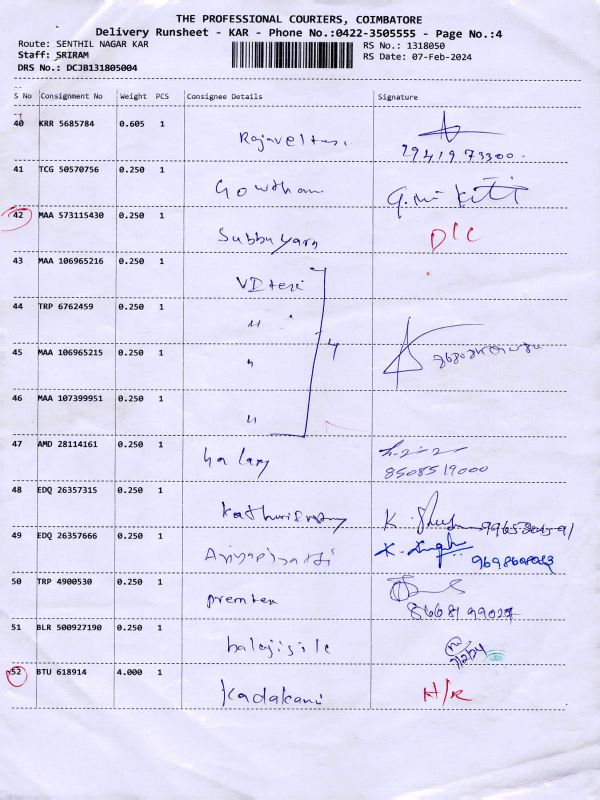 THE PROFESSIONAL COURIERS, COIMBATORE
Delivery Runsheet - KAR - Phone No.:0422-3505555 - Page No.:4
Route: SENTHIL NAGAR KAR RS No.: 1318050
Staff: SRIRAM RS Date: 07-Feb-2024
DRS No.: DCJB131805004
S No Consignment No Weight PCS Consignee Details Signature
40 KRR 5685784 0.605 1
41 TCG 50570756 0.250 1 Gowtham
42 MAA 573115430 0.250 1 Subbuyarn D/C
43 MAA 106965216 0.250 1 VDtex
44 TRP 6762459 0.250 1 "
45 MAA 106965215 0.250 1 " 4
46 MAA 107399951 0.250 1 "
47 AMD 28114161 0.250 1
8508519000
48 EDQ 26357315 0.250 1
49 EDQ 26357666 0.250 1
50 TRP 4900530 0.250 1 premtex
51 BLR 500927190 0.250 1 balajisile
52 BTU 618914 4.000 1 Kadakani